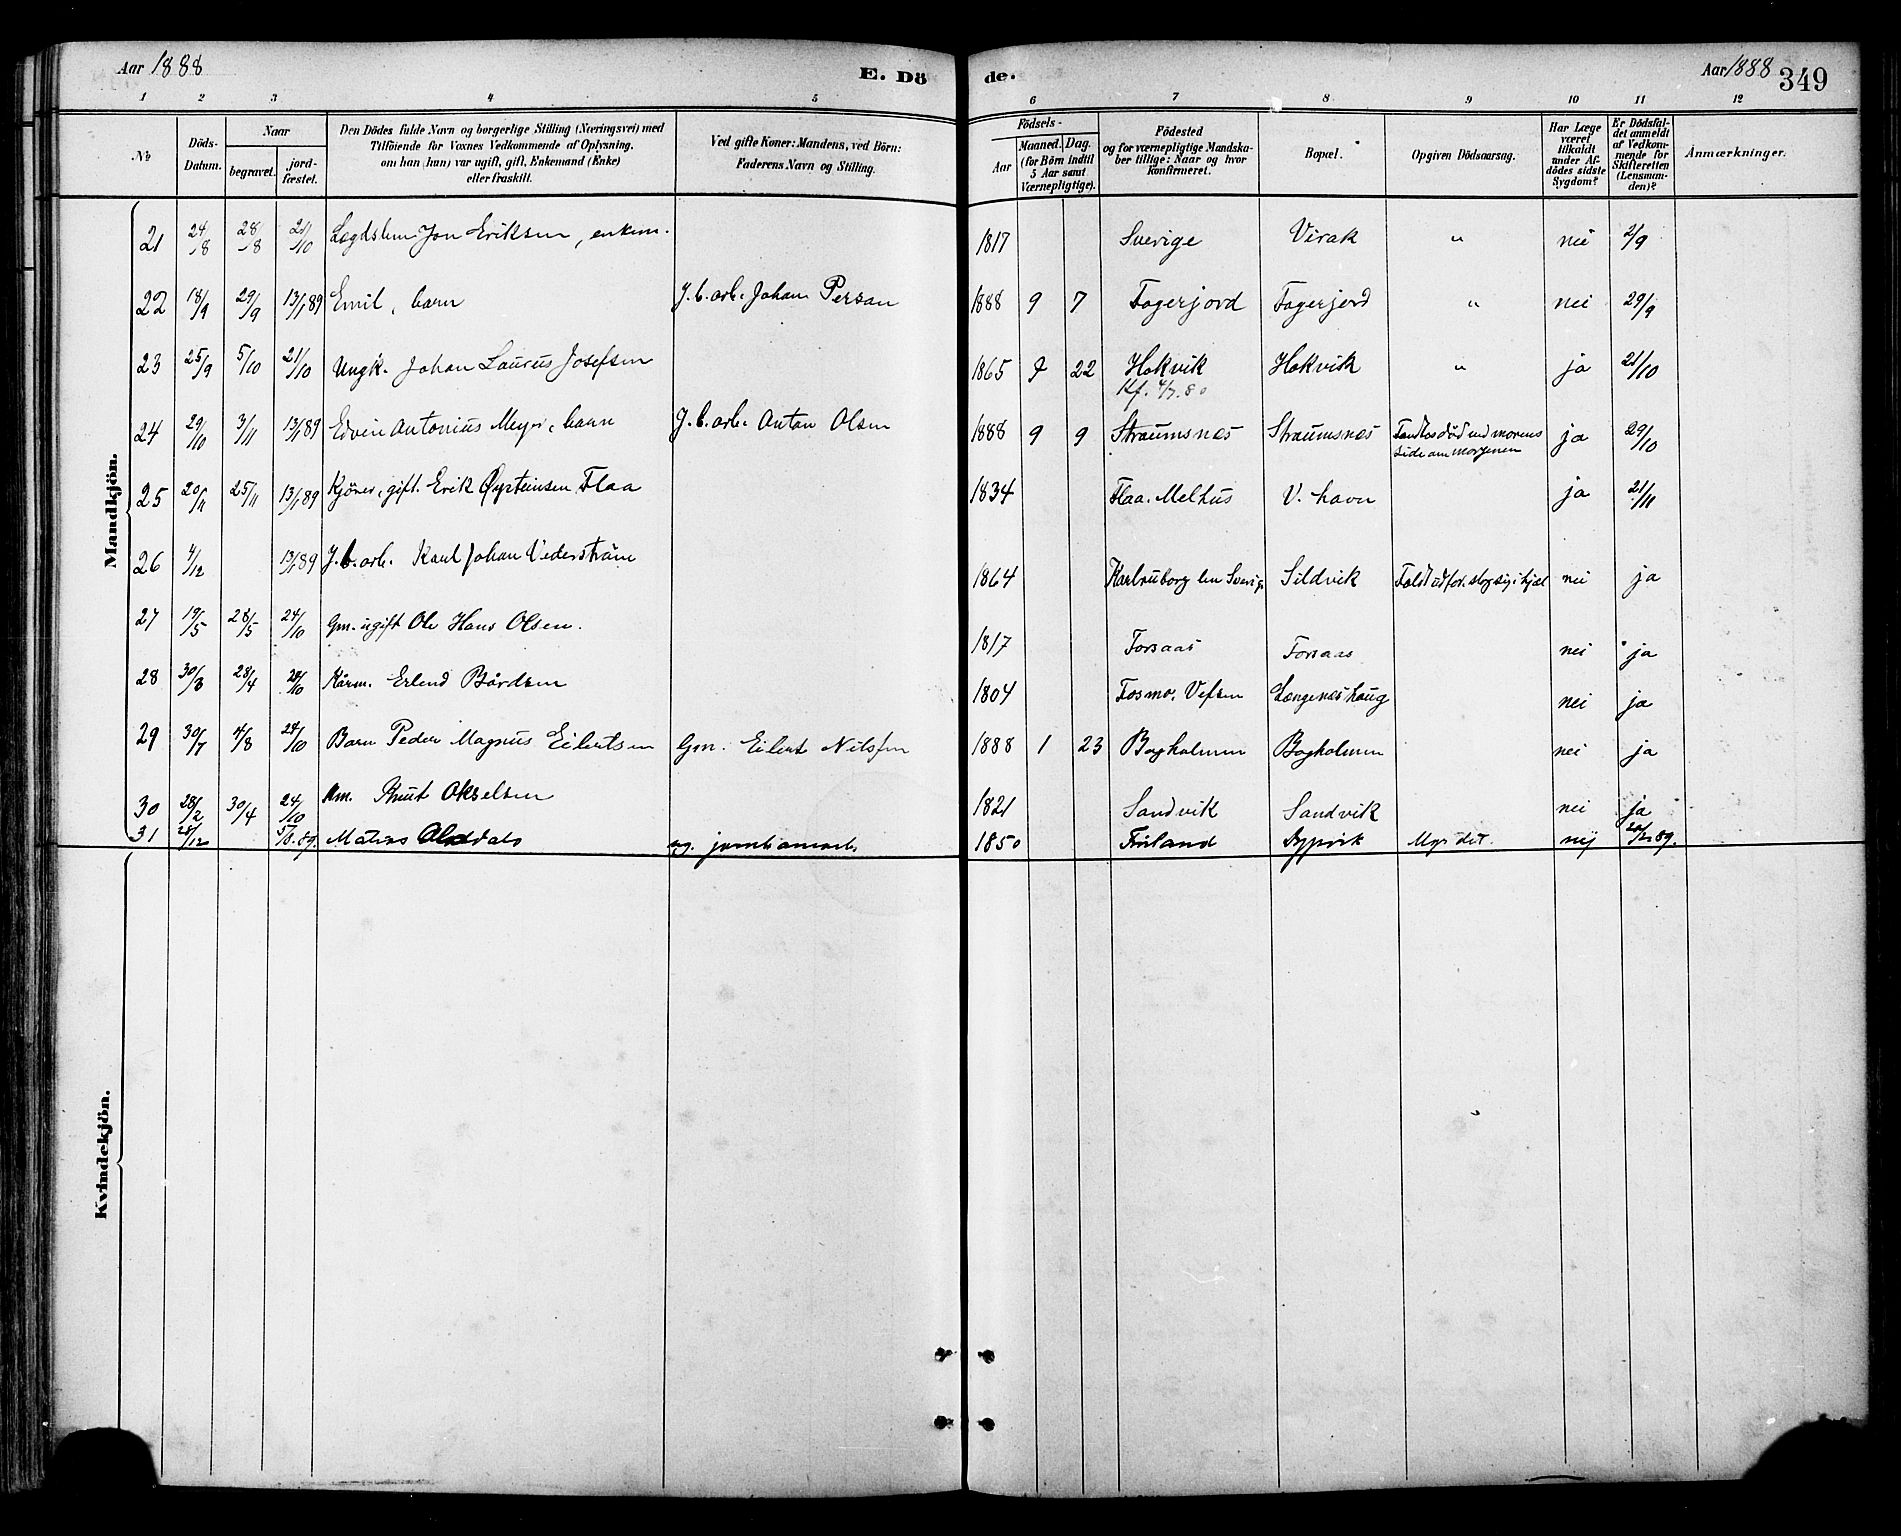 Aar 1888 E. Dö de. Aar 1888 349
1 2 3 4 5 6 7 8 9 10 11 12
No
Döds-Datum.
Naar
begravet. jordfæstet.
Den Dödes fulde Navn og borgerlige Stilling (Næringsvei) med
Tilföiende for Voxnes Vedkommende af Oplysning,
om han (hun) var ugift, gift, Enkemand (Enke)
eller fraskilt.
Ved gifte Koner: Mandens, ved Börn:
Faderens Navn og Stilling.
Födsels-
Aar Maaned. Dag.
(for Börn indtil
5 Aar samt
Værnepligtige).
Födested
og for værnepligtige Mandskaber tillige: Naar og hvor
konfirmeret.
Bopæl.
Opgiven Dödsaarsag.
Har Læge
været
tilkaldt
under Afdödes sidste
Sygdom?
Er Dödsfaldet anmeldt
af Vedkommende for
Skifteretten
(Lensmanden)?
Anmærkninger.
Mandkjön.
21 24/8 28/8 21/10 Lægdslem Jon Eriksen, enkem. 1817 Sverige Virak " nei 2/9
22 18/9 29/9 13/1 89 Emil, barn J.b.arb. Johan Persan 1888 9 7 Fagerjord Fagerjord " nei 29/9
23 25/9 5/10 21/10 Ungk. Johan Laurus Josefsen 1865 9 22 Hakvik Hakvik " ja 21/10
Kf. 4/7.80
24 29/10 3/11 13/1 89 Edvin Antonius Meyer, barn J.b.arb. Anton Olsen 1888 9 9 Straumsnes Straumsnes Fandtes död ved morens ja 29/10
side om morgenen
25 20/11 25/11 13/1 89 gift. Erik Øysteinsen Flaa 1834 Flaa. Melhus V. havn ja 21/11
26 4/12 13/1 89 J.b.arb. Karl Johan Vederström 1864 Sildvik Faldt udfor. slog sig ihjæl nei ja
27 19/5 28/5 24/10 Gm. ugift Ole Hans Olsen. 1817 Forsaas Forsaas nei ja
28 30/3 28/4 24/10 Kårm. Erlend Bårdsen 1804 Fosmo. Vefsen Længeneshaug nei ja
29 30/7 4/8 24/10 Barn Peder Magnus Eilertsen Gm. Eilert Nilsen 1888 1 23 Bogholmen Bogholmen nei ja
30 28/2 30/4 24/10 Km. Knut Akselsen 1821 Sandvik Sandvik nei ja
31 28/12 89 Matias ug. jernbanearb. 1850 Finland Dypvik Myrdet. nej 89.
Kvindekjön.